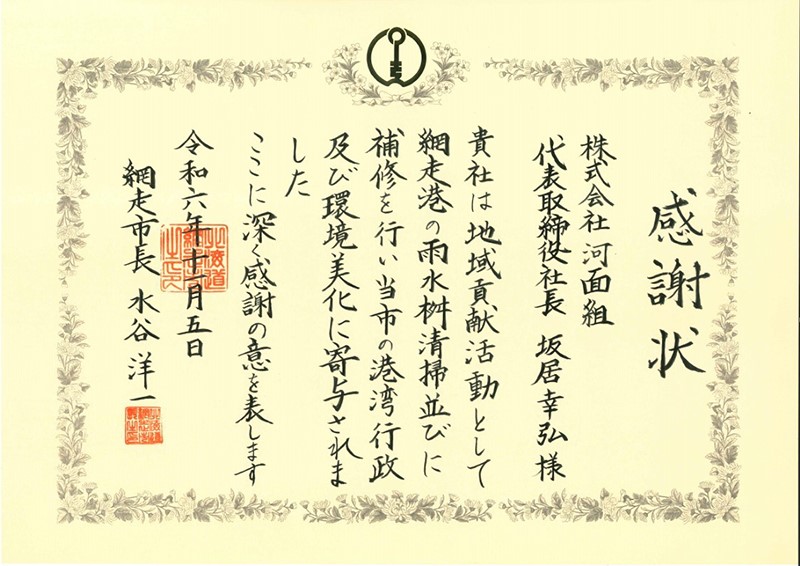 感謝状
株式会社 河面組
代表取締役社長 坂居幸弘 様
貴社は地域貢献活動として
網走港の雨水桝清掃並びに
補修を行い当市の港湾行政
及び環境美化に寄与されま
した
ここに深く感謝の意を表します
令和六年十一月五日
網走市長 水谷洋一